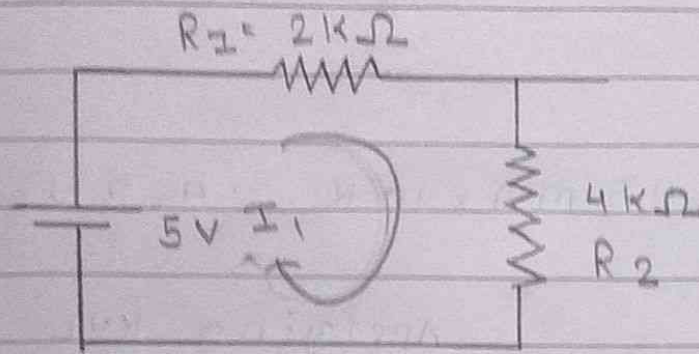 R1 = 2KΩ
5V I1
4KΩ
R2